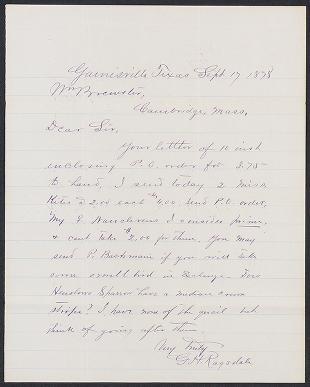 Gainesville Texas Sept 17 1878
Wm Brewster,
Cambridge, Mass,
Dear Sir,
Your letter of 10 inst
enclosing P. O. order for 3.75
to hand, I send today 2 Miss
Kites @ 2.00 each $4.00 send P.O. order.
My P. I consider prime,
& cant take $2.00 for them, You may
send P. Bachmani if you will take
some small bird in Exchange Does
Henslows Sparrow have a median crown
stripe? I have none of the quail but
think of going after them.
Very Truly
G. H. Ragsdale